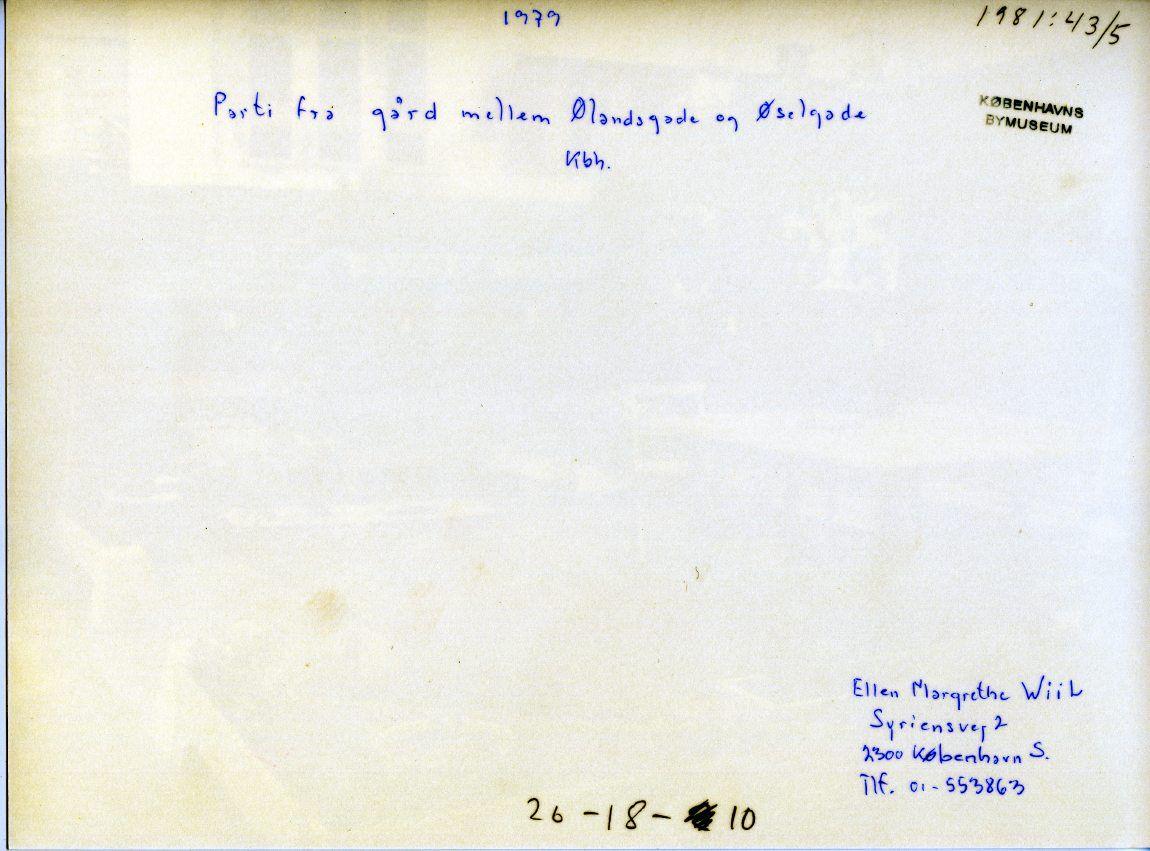 1979
1981:43/5
Parti fra gård mellem Ølandsgade og Øselgade
Kbh.
KØBENHAVNS
BYMUSEUM
Ellen Margrethe Wiil
Syriensvej 2
2300 København S.
Tlf. 01-553863
26-18-10